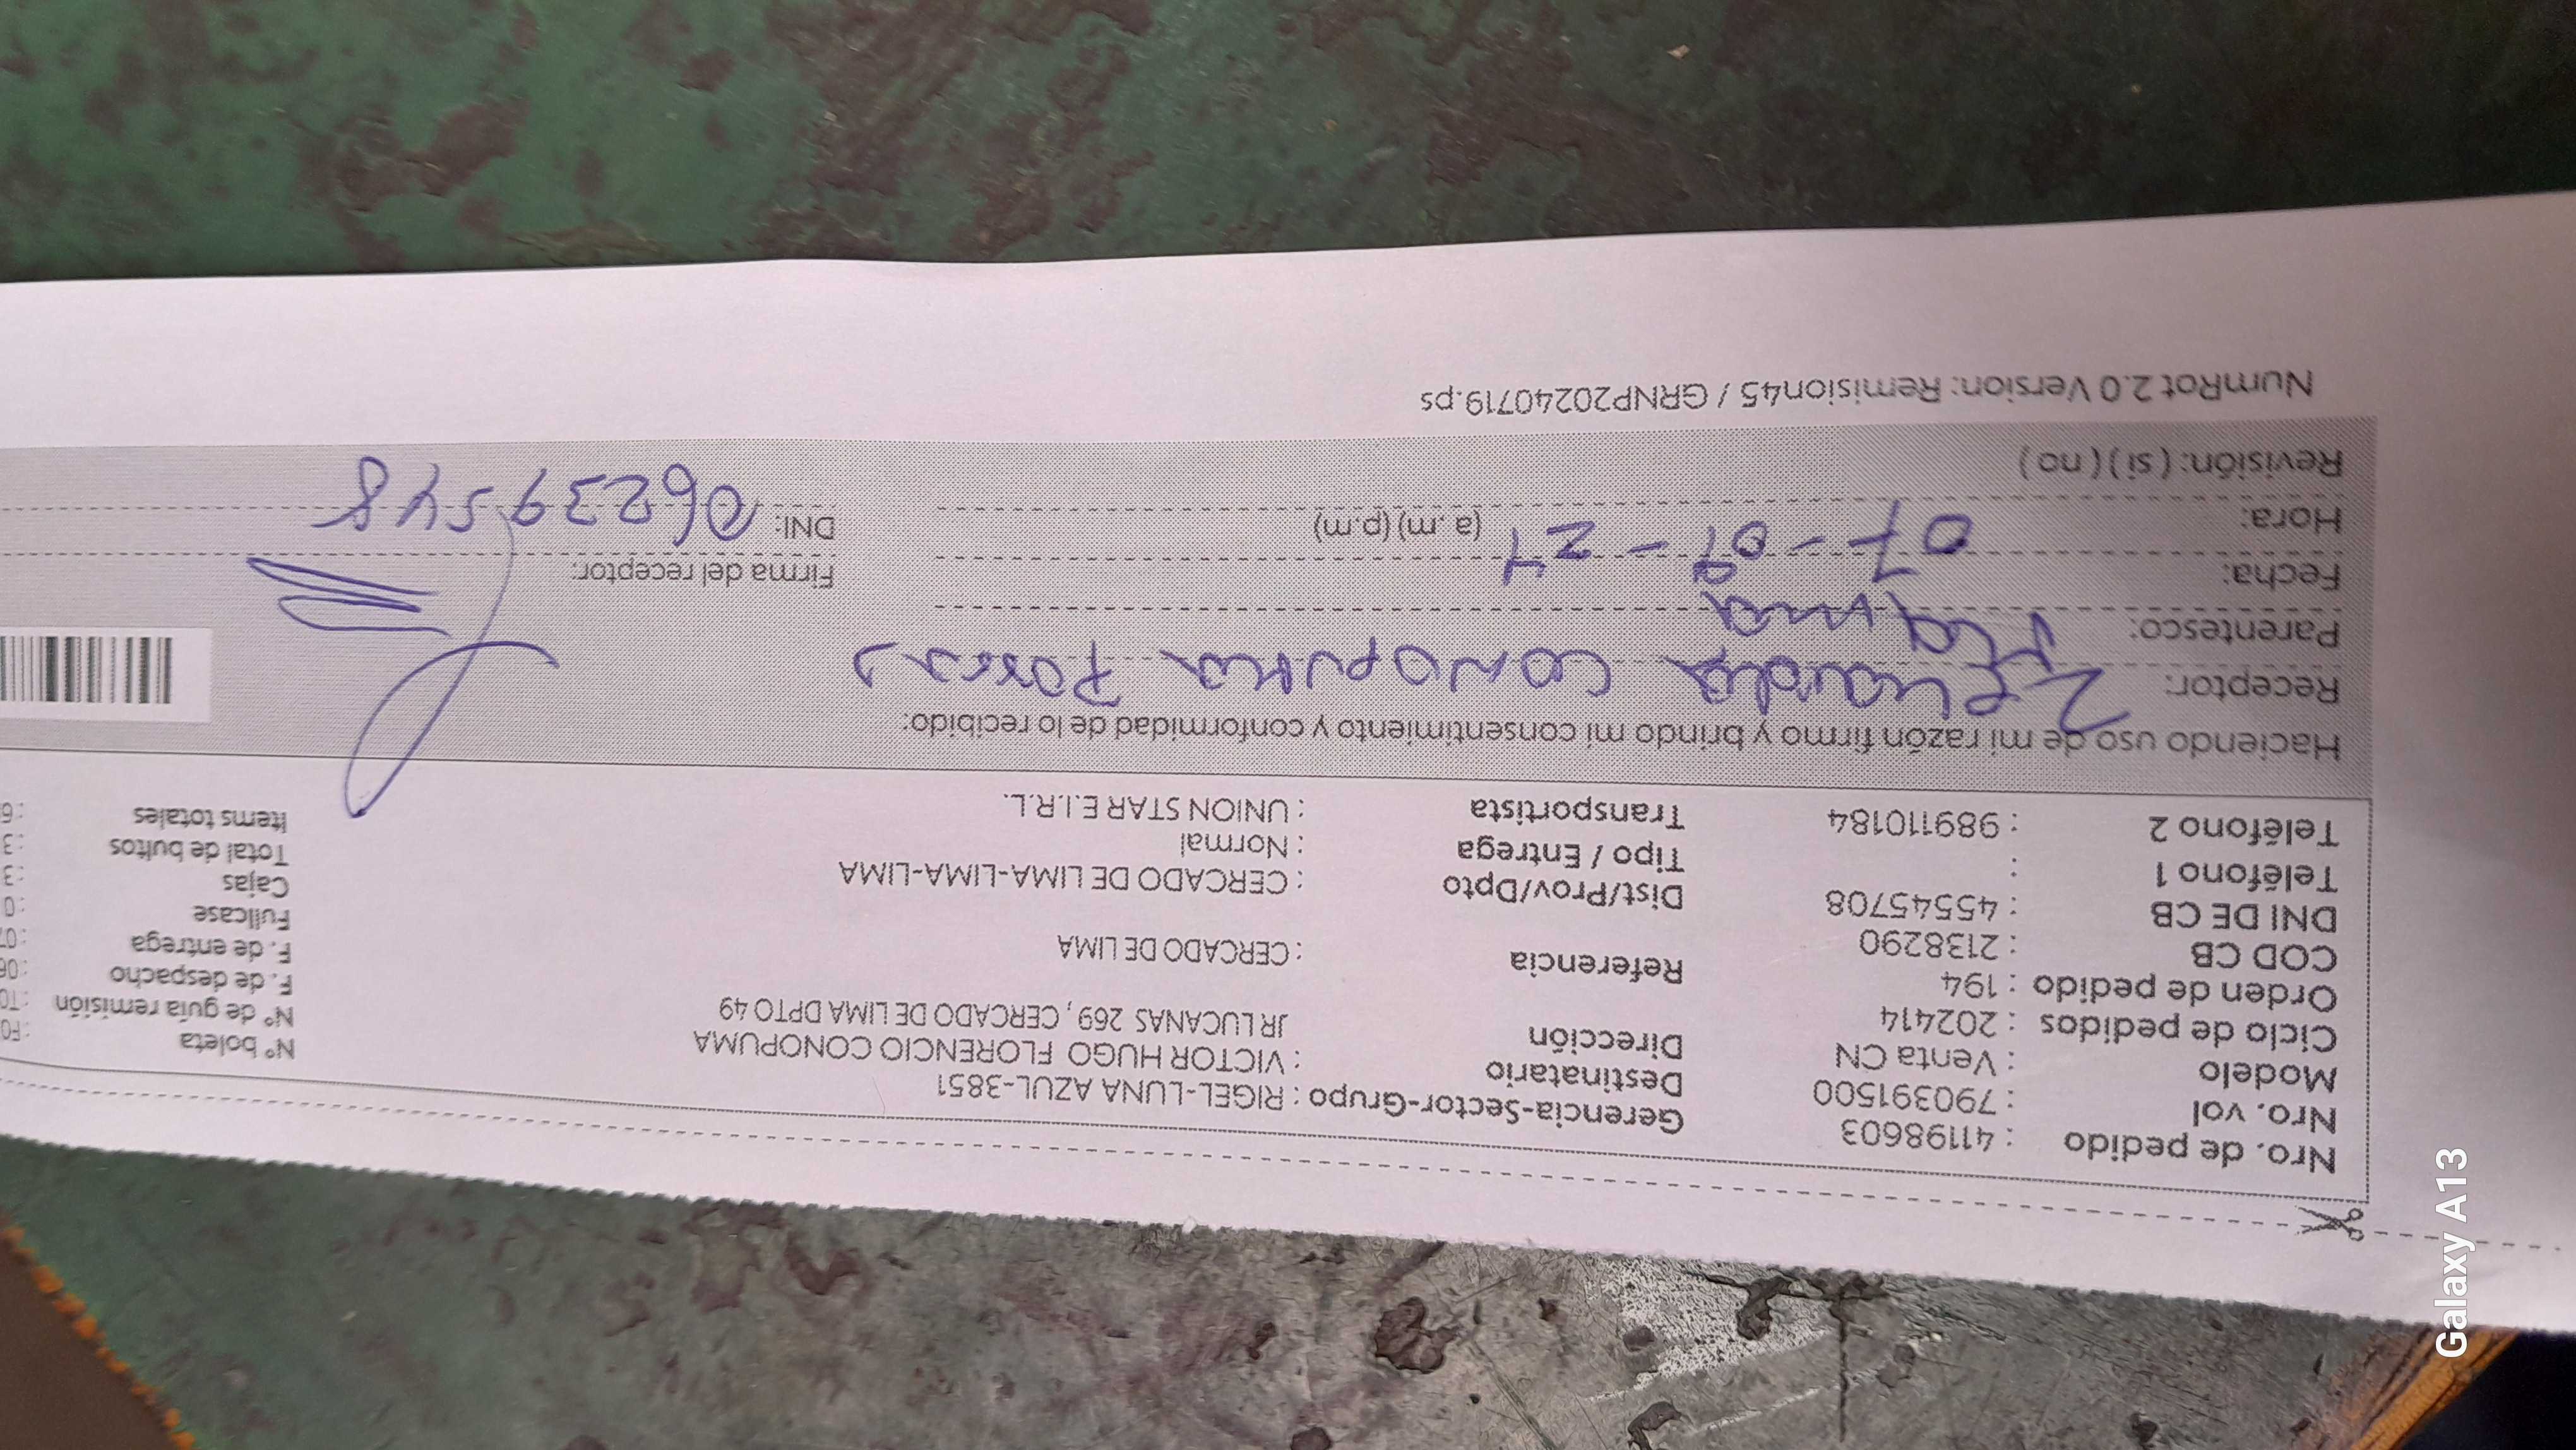 Nro. de pedido : 41198603
Nro. vol : 790391500
Modelo : Venta CN
Ciclo de pedidos : 202414
Orden de pedido : 194
COD CB : 2138290
DNI DE CB : 45545708
Teléfono 1 :
Teléfono 2 : 989110184
Gerencia-Sector-Grupo : RIGEL-LUNA AZUL-3851
Destinatario : VICTOR HUGO FLORENCIO CONOPUMA
Dirección JR LUCANAS 269, CERCADO DE LIMA DPTO 49
Referencia : CERCADO DE LIMA
Dist/Prov/Dpto : CERCADO DE LIMA-LIMA-LIMA
Tipo / Entrega : Normal
Transportista : UNION STAR E.I.R.L.
N° boleta : F0
N° de guía remisión : T0
F. de despacho : 06
F. de entrega : 07
Fullcase : 0
Cajas : 3
Total de bultos : 3
Items totales : 6
Haciendo uso de mi razón firmo y brindo mi consentimiento y conformidad de lo recibido:
Receptor: CONOPUMA
Parentesco:
Fecha: 07-09-24
Hora: (a.m) (p.m)
Revisión: ( si ) ( no )
Firma del receptor:
DNI: 06239548
NumRot 2.0 Version: Remision45 / GRNP20240719.ps
Galaxy A13